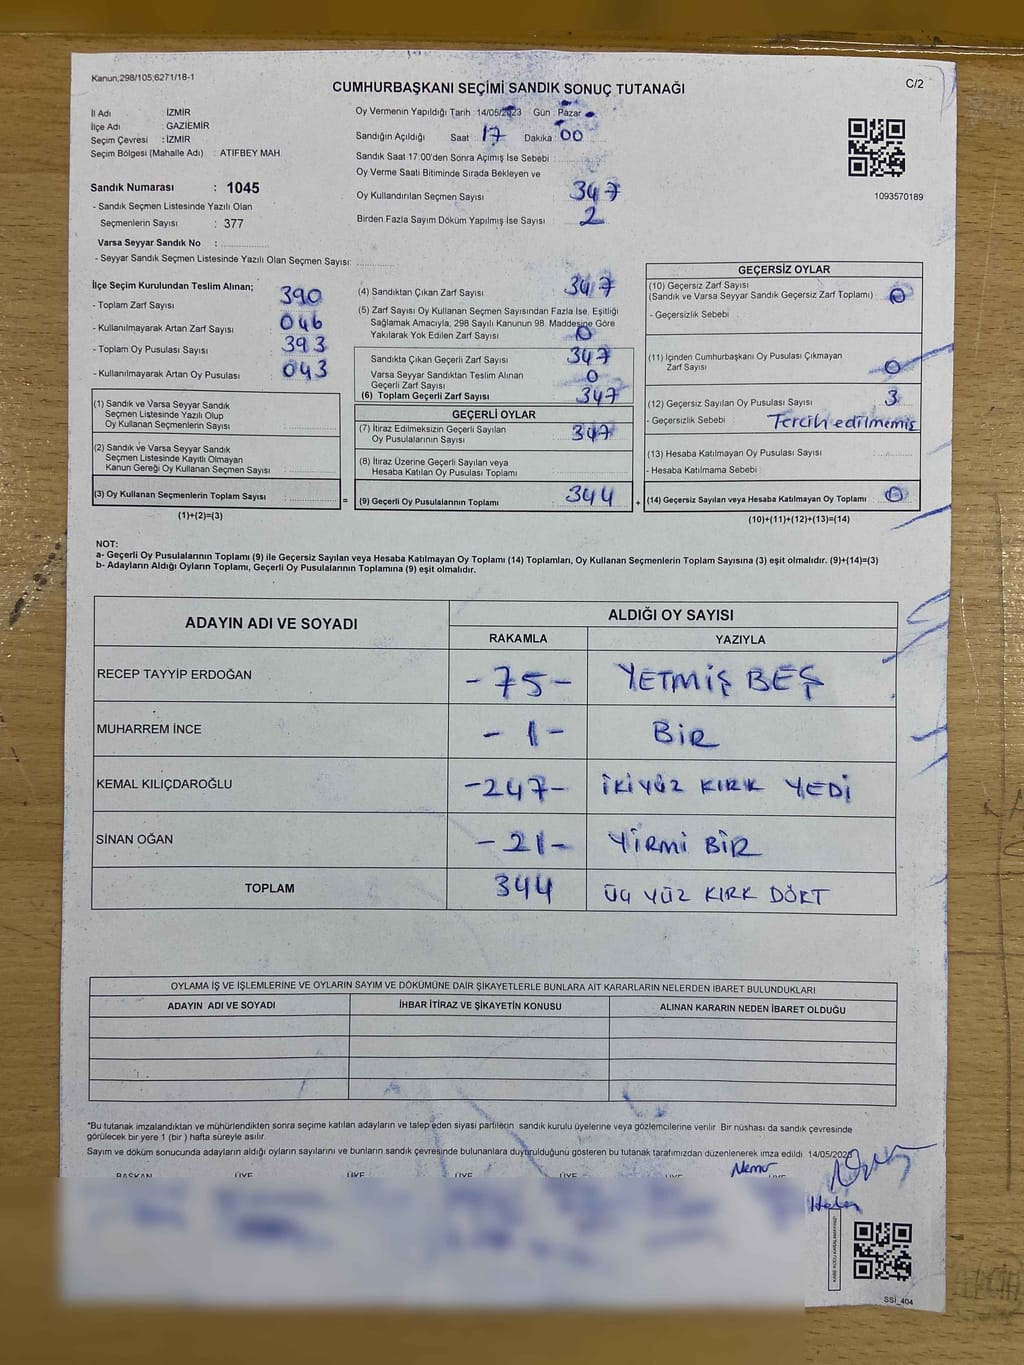 Kanun;298/105;6271/18-1
CUMHURBAŞKANI SEÇİMİ SANDIK SONUÇ TUTANAĞI
C/2
İl Adı : İZMİR
İlçe Adı : GAZİEMİR
Seçim Çevresi : İZMİR
Seçim Bölgesi (Mahalle Adı) : ATIFBEY MAH
Sandık Numarası : 1045
- Sandık Seçmen Listesinde Yazılı Olan
Seçmenlerin Sayısı : 377
Varsa Seyyar Sandık No :
- Seyyar Sandık Seçmen Listesinde Yazılı Olan Seçmen Sayısı:
Oy Vermenin Yapıldığı Tarih : 14/05/2023 Gün : Pazar
Sandığın Açıldığı Saat : 17 Dakika : 00
Sandık Saat 17:00'den Sonra Açımış İse Sebebi :
Oy Verme Saati Bitiminde Sırada Bekleyen ve
Oy Kullandırılan Seçmen Sayısı 347
Birden Fazla Sayım Döküm Yapılmış İse Sayısı 2
1093570189
İlçe Seçim Kurulundan Teslim Alınan;
- Toplam Zarf Sayısı 390
- Kullanılmayarak Artan Zarf Sayısı 046
- Toplam Oy Pusulası Sayısı 393
- Kullanılmayarak Artan Oy Pusulası 043
(1) Sandık ve Varsa Seyyar Sandık
Seçmen Listesinde Yazılı Olup
Oy Kullanan Seçmenlerin Sayısı :
(2) Sandık ve Varsa Seyyar Sandık
Seçmen Listesinde Kayıtlı Olmayan
Kanun Gereği Oy Kullanan Seçmen Sayısı :
(3) Oy Kullanan Seçmenlerin Toplam Sayısı :
=
(1)+(2)=(3)
(4) Sandıktan Çıkan Zarf Sayısı 347
(5) Zarf Sayısı Oy Kullanan Seçmen Sayısından Fazla İse, Eşitliği
Sağlamak Amacıyla, 298 Sayılı Kanunun 98. Maddesine Göre
Yakılarak Yok Edilen Zarf Sayısı : 0
Sandıkta Çıkan Geçerli Zarf Sayısı 347
Varsa Seyyar Sandıktan Teslim Alınan
Geçerli Zarf Sayısı 0
(6) Toplam Geçerli Zarf Sayısı 347
GEÇERLİ OYLAR
(7) İtiraz Edilmeksizin Geçerli Sayılan
Oy Pusulalarının Sayısı : 347
(8) İtiraz Üzerine Geçerli Sayılan veya
Hesaba Katılan Oy Pusulası Toplamı :
(9) Geçerli Oy Pusulalarının Toplamı 344
+
GEÇERSİZ OYLAR
(10) Geçersiz Zarf Sayısı
(Sandık ve Varsa Seyyar Sandık Geçersiz Zarf Toplamı) : 0
- Geçersizlik Sebebi :
(11) İçinden Cumhurbaşkanı Oy Pusulası Çıkmayan
Zarf Sayısı : 0
(12) Geçersiz Sayılan Oy Pusulası Sayısı : 3
- Geçersizlik Sebebi : Tercih edilmemiş
(13) Hesaba Katılmayan Oy Pusulası Sayısı :
- Hesaba Katılmama Sebebi :
(14) Geçersiz Sayılan veya Hesaba Katılmayan Oy Toplamı : 0
(10)+(11)+(12)+(13)=(14)
NOT:
a- Geçerli Oy Pusulalarının Toplamı (9) ile Geçersiz Sayılan veya Hesaba Katılmayan Oy Toplamı (14) Toplamları, Oy Kullanan Seçmenlerin Toplam Sayısına (3) eşit olmalıdır. (9)+(14)=(3)
b- Adayların Aldığı Oyların Toplamı, Geçerli Oy Pusulalarının Toplamına (9) eşit olmalıdır.
ADAYIN ADI VE SOYADI
ALDIĞI OY SAYISI
RAKAMLA YAZIYLA
RECEP TAYYİP ERDOĞAN - 75 - YETMİŞ BEŞ
MUHARREM İNCE - 1 - BİR
KEMAL KILIÇDAROĞLU -247- İKİ YÜZ KIRK YEDİ
SİNAN OĞAN - 21 - YİRMİ BİR
TOPLAM 344 ÜÇ YÜZ KIRK DÖRT
OYLAMA İŞ VE İŞLEMLERİNE VE OYLARIN SAYIM VE DÖKÜMÜNE DAİR ŞİKAYETLERLE BUNLARA AİT KARARLARIN NELERDEN İBARET BULUNDUKLARI
ADAYIN ADI VE SOYADI İHBAR İTİRAZ VE ŞİKAYETİN KONUSU ALINAN KARARIN NEDEN İBARET OLDUĞU
*Bu tutanak imzalandıktan ve mühürlendikten sonra seçime katılan adayların ve talep eden siyasi partilerin sandık kurulu üyelerine veya gözlemcilerine verilir. Bir nüshası da sandık çevresinde
görülecek bir yere 1 (bir) hafta süreyle asılır.
Sayım ve döküm sonucunda adayların aldığı oyların sayılarını ve bunların sandık çevresinde bulunanlara duyurulduğunu gösteren bu tutanak tarafımızdan düzenlenerek imza edildi. 14/05/2023
BAŞKAN ÜYE ÜYE ÜYE ÜYE ÜYE ÜYE
SSİ_404